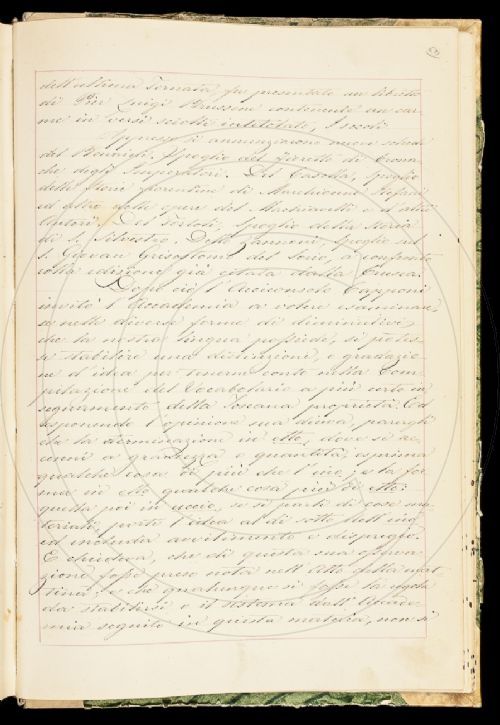 dell'ultima Tornata, fu presentato un libretto
di Pier Luigi contenente un car
me in versi sciolti intitolato, I
Appresso si annunziarono nuove schede
del Spoglio del Fioretto di Crona
che degli Imperatori. Del Casotti, Spoglio
delle Storie fiorentine di Marchionne Stefani
ed altro delle opere del Machiavelli e d'altri
Autori. Del Spoglio della Storia
di S. Silvestro. Dello Zannoni, Spoglio sul
S. Giovan Grisostomo del Sorio, a confronto
colla edizione già citata dalla Crusca.
Dopo ciò l'Arciconsolo Capponi
invitò l'Accademia a voler esaminare,
se nelle diverse forme di diminutivi,
che la nostra lingua possiede, si potes-
se stabilire una distinzione, e gradazio-
ne d'idea per tenerne conto nella Com-
pilazione del Vocabolario a più certo in-
segnamento della Toscana proprietà. Ed
esponendo l'opinione sua diceva, parergli
che la terminazione in etto, dove si ac-
cenni a grandezza o quantità, esprima
qualche cosa di più che l'ino, e la for-
ma in ello qualche cosa più di etto:
questa poi in uccio, se si parli di cose ma-
teriali, porti l'idea al di sotto dell'ino,
ed includa avvilimento e dispregio.
E chiedeva, che di questa sua osserva-
zione fosse preso nota nell'Atto della mat-
tina, e che qualunque si fosse la regola
da stabilirsi o il sistema dall'Accade-
mia seguito in questa materia, non si